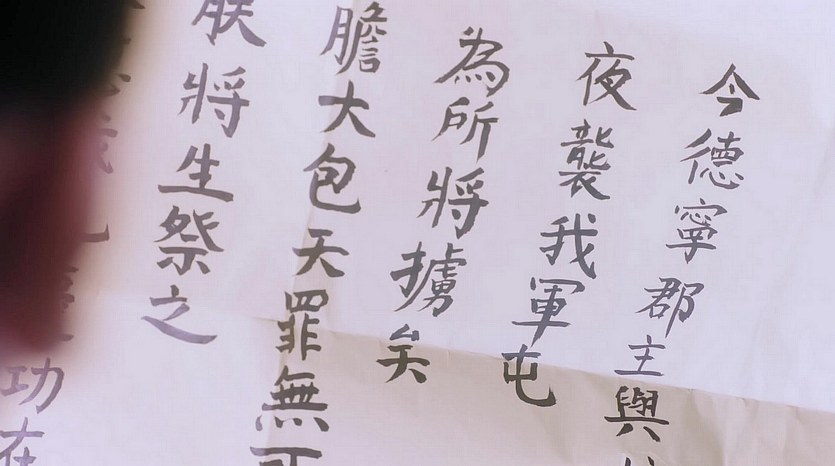 今德寧郡主與
夜襲我軍屯
為所將擄矣
膽大包天罪無可
朕將生祭之
功在